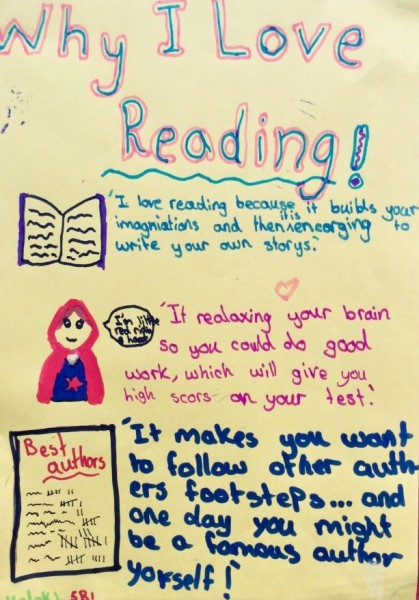 Why I Love
Reading!
'I love reading because it builds your
imagniations and then it is encorging to
write your own storys.'
'It realaxing your brain
so you could do good
work, which will give you
high scors on your test.'
I'm little
red riding
hood
Best
authors
'It makes you want
to follow other auth-
ers footsteps... and
one day you might
be a famous author
yorself!'
5B1